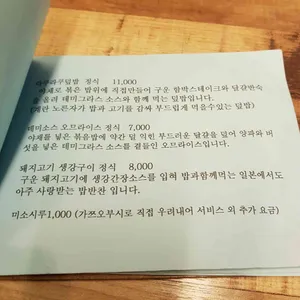 덮밥 정식 11,000
야채로 볶은 밥위에 직접만들어 구운 함박스테이크와 달걀반숙
을 올려 데미그라스 소스와 함께 먹는 덮밥입니다.
(계란 노른자가 밥과 고기를 감싸 부드럽게 먹을수있는 덮밥)
데미소스 오므라이스 정식 7,000
야채를 넣은 볶음밥에 약간 덜 익힌 부드러운 달걀을 덮어 양파와 버
섯을 넣은 데미그라스 소스를 곁들인 오므라이스입니다.
돼지고기 생강구이 정식 8,000
구운 돼지고기에 생강간장소스를 입혀 밥과함께먹는 일본에서도
아주 사랑받는 밥반찬 입니다.
미소시루1,000 (가쯔오부시로 직접 우려내어 서비스 외 추가 요금)